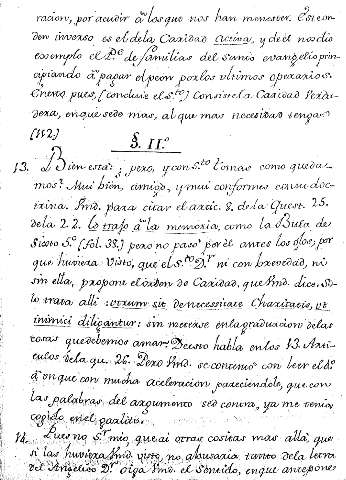 racion, por acudir a los que nos han menester. Este or-
den inverso es el de la Caridad activa, y de èl nos dio
exemplo el P.e de familias del Santo evangelio prin-
cipiando à pagar el peon por los ultimos operarios.
En esto pues, (concluie el S.to) consiste la Caridad Verda-
dera, en que se dè mas, al que mas necesidad tenga.
(112)
§. II.º
13. Bien està; pero, y con S.to Tomas como queda-
mos? Mui bien, amigo, y mui conformes con su doc-
trina. Vmd. para citar el artic. 8. de la Quest. 25.
de la 2. 2. lo trajo à la memoria, como la Bula de
Sixto 5.º (fol. 38.) pero no pasò por èl antes los ojos, por
que huviera visto, que el S.to D.r ni con brevedad, ni
sin ella, propone el orden de Caridad, que Vmd. dice. So-
lo trata alli: utrum sit de necessitate Charitatis, ut
inimici diligantur: sin meterse en la graduacion de las
cosas que debemos amar. De esto habla en los 13. Arti-
culos de la qu. 26. Pero Vmd. se contentò con leer el 8.º
aunque con mucha aceleracion pareciendole, que con
las palabras del argumento sed contra, ya me tenia
cogido en el garlito.
14. Pues no S.r mio, que ai otras cositas mas allà, que
si las huviera Vmd. visto, no abusaria tanto de la letra
del Angelico D.r oiga Vmd. el Sentido, en que antepone